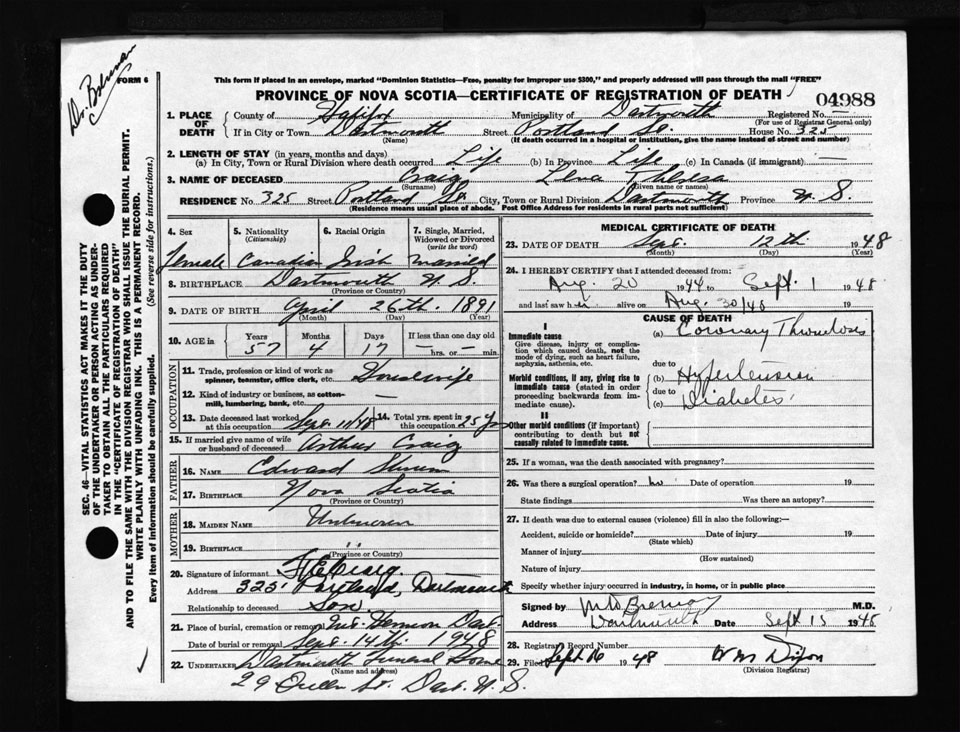 FORM 6
This form if placed in an envelope, marked "Dominion Statistics—Free, penalty for improper use $300," and properly addressed will pass through the mail "FREE"
PROVINCE OF NOVA SCOTIA—CERTIFICATE OF REGISTRATION OF DEATH
04988
1. PLACE OF DEATH
County of Halifax Municipality of Dartmouth Registered No. —
(For use of Registrar General only)
If in City or Town Dartmouth Street Portland St. House No. 325
(Name) (If death occurred in a hospital or institution, give the name instead of street and number)
2. LENGTH OF STAY (in years, months and days)
(a) In City, Town or Rural Division where death occurred Life (b) In Province Life (c) In Canada (if immigrant) —
3. NAME OF DECEASED Craig Lena Theresa
(Surname) (Given name or names)
RESIDENCE No. 325 Street Portland St. City, Town or Rural Division Dartmouth Province N. S.
(Residence means usual place of abode. Post Office Address for residents in rural parts not sufficient)
4. Sex 5. Nationality (Citizenship) 6. Racial Origin 7. Single, Married, Widowed or Divorced (write the word)
Female Canadian Irish Married
8. BIRTHPLACE Dartmouth N. S.
(Province or Country)
9. DATE OF BIRTH April 26th. 1891
(Month) (Day) (Year)
10. AGE in Years Months Days If less than one day old
57 4 17 — hrs. or — min.
OCCUPATION
11. Trade, profession or kind of work as spinner, teamster, office clerk, etc. Housewife
12. Kind of industry or business, as cotton-mill, lumbering, bank, etc. —
13. Date deceased last worked at this occupation 14. Total yrs. spent in this occupation 25 yrs
15. If married give name of wife or husband of deceased Arthur Craig
FATHER
16. NAME Edward
17. BIRTHPLACE Nova Scotia
MOTHER
18. MAIDEN NAME Unknown
19. BIRTHPLACE " "
(Province or Country)
20. Signature of informant Craig
Address 325 Portland, Dartmouth
Relationship to deceased Son.
21. Place of burial, cremation or removal Mt. Hermon Dart.
Date of burial or removal Sept. 14th 1948
22. UNDERTAKER Dartmouth Funeral Home
(Name and address)
29 Queen St. Dart. N. S.
MEDICAL CERTIFICATE OF DEATH
23. DATE OF DEATH Sept. 12th 1948
(Month) (Day) (Year)
24. I HEREBY CERTIFY that I attended deceased from:
Aug. 20 1944 to Sept. 1 1948
and last saw h er alive on Aug. 30/48 19
CAUSE OF DEATH
I
Immediate cause
Give disease, injury or complication which caused death, not the mode of dying, such as heart failure, asphyxia, asthenia, etc.
(a) Coronary Thrombosis
due to
Morbid conditions, if any, giving rise to immediate cause (stated in order proceeding backwards from immediate cause).
(b) Hypertension
due to
(c) Diabetes
II
Other morbid conditions (if important) contributing to death but not causally related to immediate cause.
25. If a woman, was the death associated with pregnancy?
26. Was there a surgical operation? no Date of operation 19
State findings Was there an autopsy?
27. If death was due to external causes (violence) fill in also the following:—
Accident, suicide or homicide? Date of injury 19
(State which)
Manner of injury
(How sustained)
Nature of injury
Specify whether injury occurred in industry, in home, or in public place
Signed by M.D.
Address Dartmouth Date Sept 15 1948
28. Registration Record Number
29. Filed Sept 16 1948 W M Dixon
(Division Registrar)
SEC. 46—VITAL STATISTICS ACT MAKES IT THE DUTY
OF THE UNDERTAKER OR PERSON ACTING AS UNDER-
TAKER TO OBTAIN ALL THE PARTICULARS REQUIRED
IN THE "CERTIFICATE OF REGISTRATION OF DEATH"
AND TO FILE THE SAME WITH THE DIVISION REGISTRAR WHO SHALL ISSUE THE BURIAL PERMIT.
WRITE PLAINLY WITH UNFADING INK. THIS IS A PERMANENT RECORD.
Every item of information should be carefully supplied. (See reverse side for instructions.)